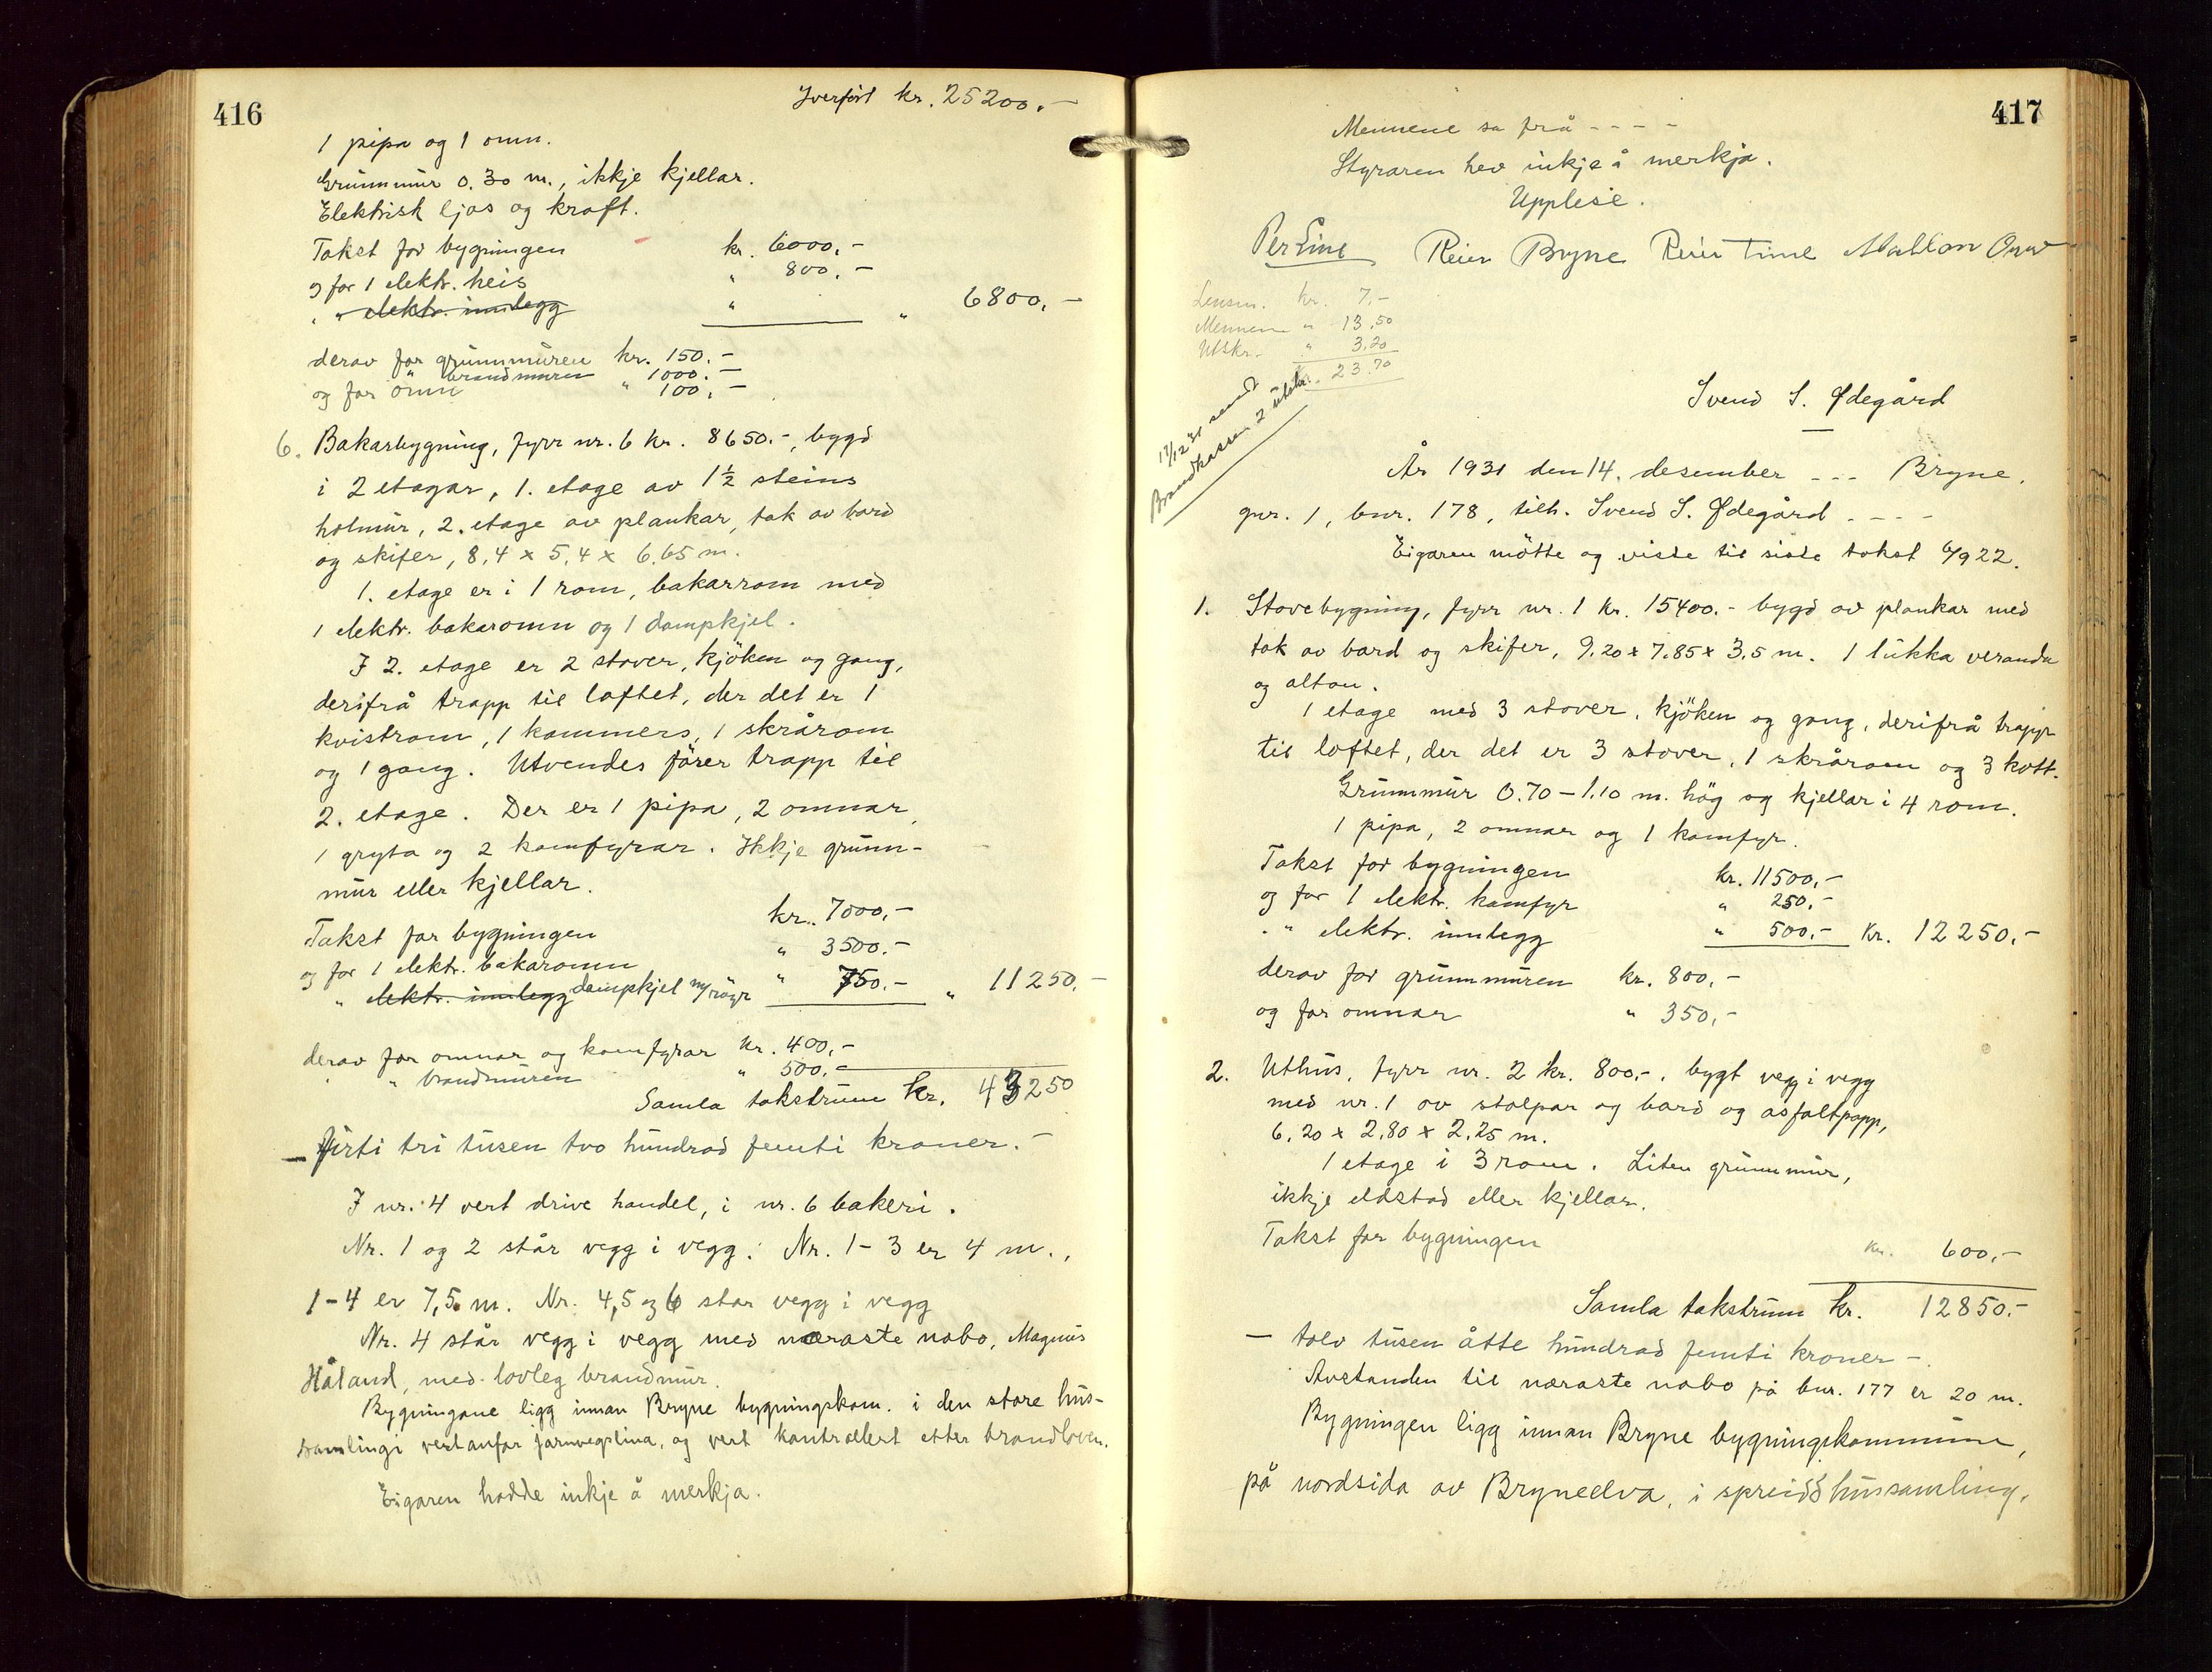 416
Yverført kr. 25200.-
1 pipa og 1 omn.
Grunnmur 0.30 m., ikkje kjellar.
Elektrisk ljos og kraft.
Takst for bygningen kr. 6000,-
og for 1 elektr. heis " 800,-
" " elektr. innlegg " " 6800,-
derav for grunnmuren kr. 150.-
" brandmuren 1000.-
og for omn " 100,-
6. Bakarbygning, fyrr nr. 6 kr. 8650.-, bygd
i 2 etagar, 1. etage av 1½ steins
holmur, 2. etage av plankar, tak av bord
og skifer, 8,4 x 5,4 x 6,65 m.
1. etage er i 1 rom, bakarrom med
1 elektr. bakaromn og 1 dampkjel.
I 2. etage er 2 stover, kjöken og gang,
derifrå trapp til loftet, der det er 1
kvistrom, 1 kammers, 1 skrårom
og 1 gang. Utvendes förer trapp til
2. etage. Der er 1 pipa, 2 omnar,
1 gryta og 2 komfyrar. Ikkje grunn-
mur eller kjellar.
Takst for bygningen kr. 7000,-
og for 1 elektr. bakaromn " 3500.-
" elektr. innlegg dampkjel m/röyr " 750.- " 11250.-
derav for omnar og komfyrar kr. 400,-
" " brandmuren " 500.-
Samla takstsum kr. 43250
- Firti tri tusen tvo hundrad femti kroner.-
I nr. 4 vert drive handel, i nr. 6 bakeri.
Nr. 1 og 2 står vegg i vegg. Nr. 1-3 er 4 m.,
1-4 er 7,5 m. Nr. 4,5 og 6 star vegg i vegg
Nr. 4 står vegg i vegg med næraste nabo, Magnus
Håland, med lovleg brandmur.
Bygningane ligg innan Bryne bygningskom. i den store hus-
samlingi vestanfor jarnvegslina, og vert kontrollert etter brandloven.
Eigaren hadde inkje å merkja.
417
Mennene sa frå - - - -
Styraren hev inkje å merkja.
Upplese.
Per Line Reier Bryne Reier Time
Lensm. kr. 7,-
Mennene " 13.50
Utskr. " 3.20
23.70
17/12 31 sendt
Brandkassen 2 utskr.
Svend S. Ødegård
År 1931 den 14. desember - - - Bryne.
gnr. 1, bnr. 178, tilh. Svend S. Ødegård - - - -
Eigaren mötte og viste til siste takst 6/9 22.
1. Stovebygning, fyrr nr. 1 kr. 15400.- bygd av plankar med
tak av bord og skifer, 9.20 x 7.85 x 3,5 m. 1 lukka veranda
og altan.
1 etage med 3 stover, kjöken og gang, derifrå trapp
til loftet, der det er 3 stover, 1 skrårom og 3 kott.
Grunnmur 0.70 - 1.10 m. hög og kjellar i 4 rom.
1 pipa, 2 omnar og 1 komfyr.
Takst for bygningen kr. 11500,-
og for 1 elektr. komfyr " 250,-
" " elektr. innlegg " 500,- Kr. 12250,-
derav for grunnmuren kr. 800,-
og for omnar " 350,-
2. Uthus, fyrr nr. 2 kr. 800,-, bygt vegg i vegg
med nr. 1 av stolpar og bord og asfaltpapp,
6,20 x 2,80 x 2,25 m.
1 etage i 3 rom. Liten grunnmur,
ikkje eldstad eller kjellar.
Takst for bygningen kr. 600,-
Samla takstsum kr. 12850.-
- tolv tusen åtte hundrad femti kroner -.
Avstanden til næraste nabo på bnr. 177 er 20 m.
Bygningen ligg innan Bryne bygningskommune,
på nordsida av Bryneelva, i spreidd hussamling.